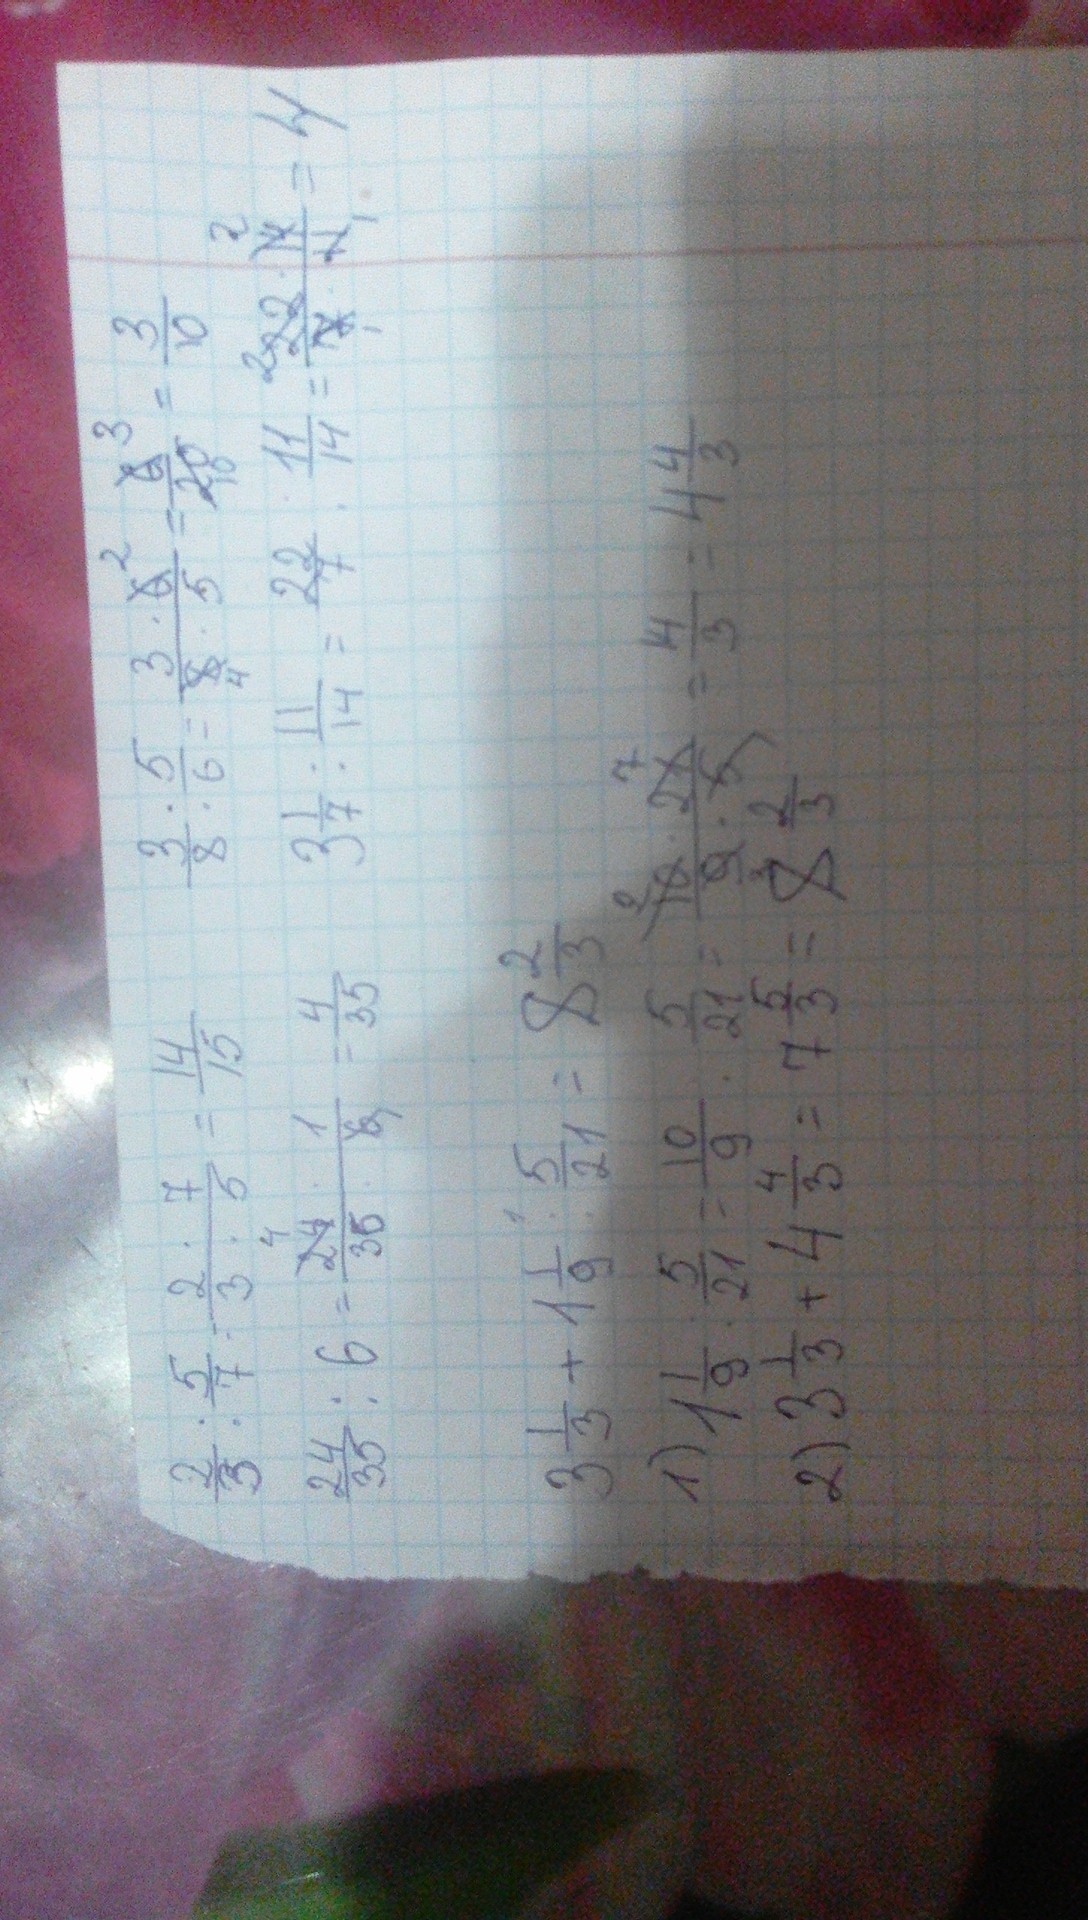 2/3 : 5/7 = 2 · 7 / 3 · 5 = 14/15
3/8 : 5/6 = 3 · 6 2 / 8 4 · 5 = 6 3 / 20 10 = 3/10
24/35 : 6 = 24 4 · 1 / 35 · 6 = 4/35
3 1/7 : 11/14 = 22/7 : 11/14 = 2 22 · 14 2 / 7 1 · 11 1 = 4
3 1/3 + 1 1/9 : 5/21 = 8 2/3
1) 1 1/9 : 5/21 = 10/9 : 5/21 = 2 10 · 21 7 / 9 3 · 5 = 14/3 = 4 4/3
2) 3 1/3 + 4 4/3 = 7 5/3 = 8 2/3